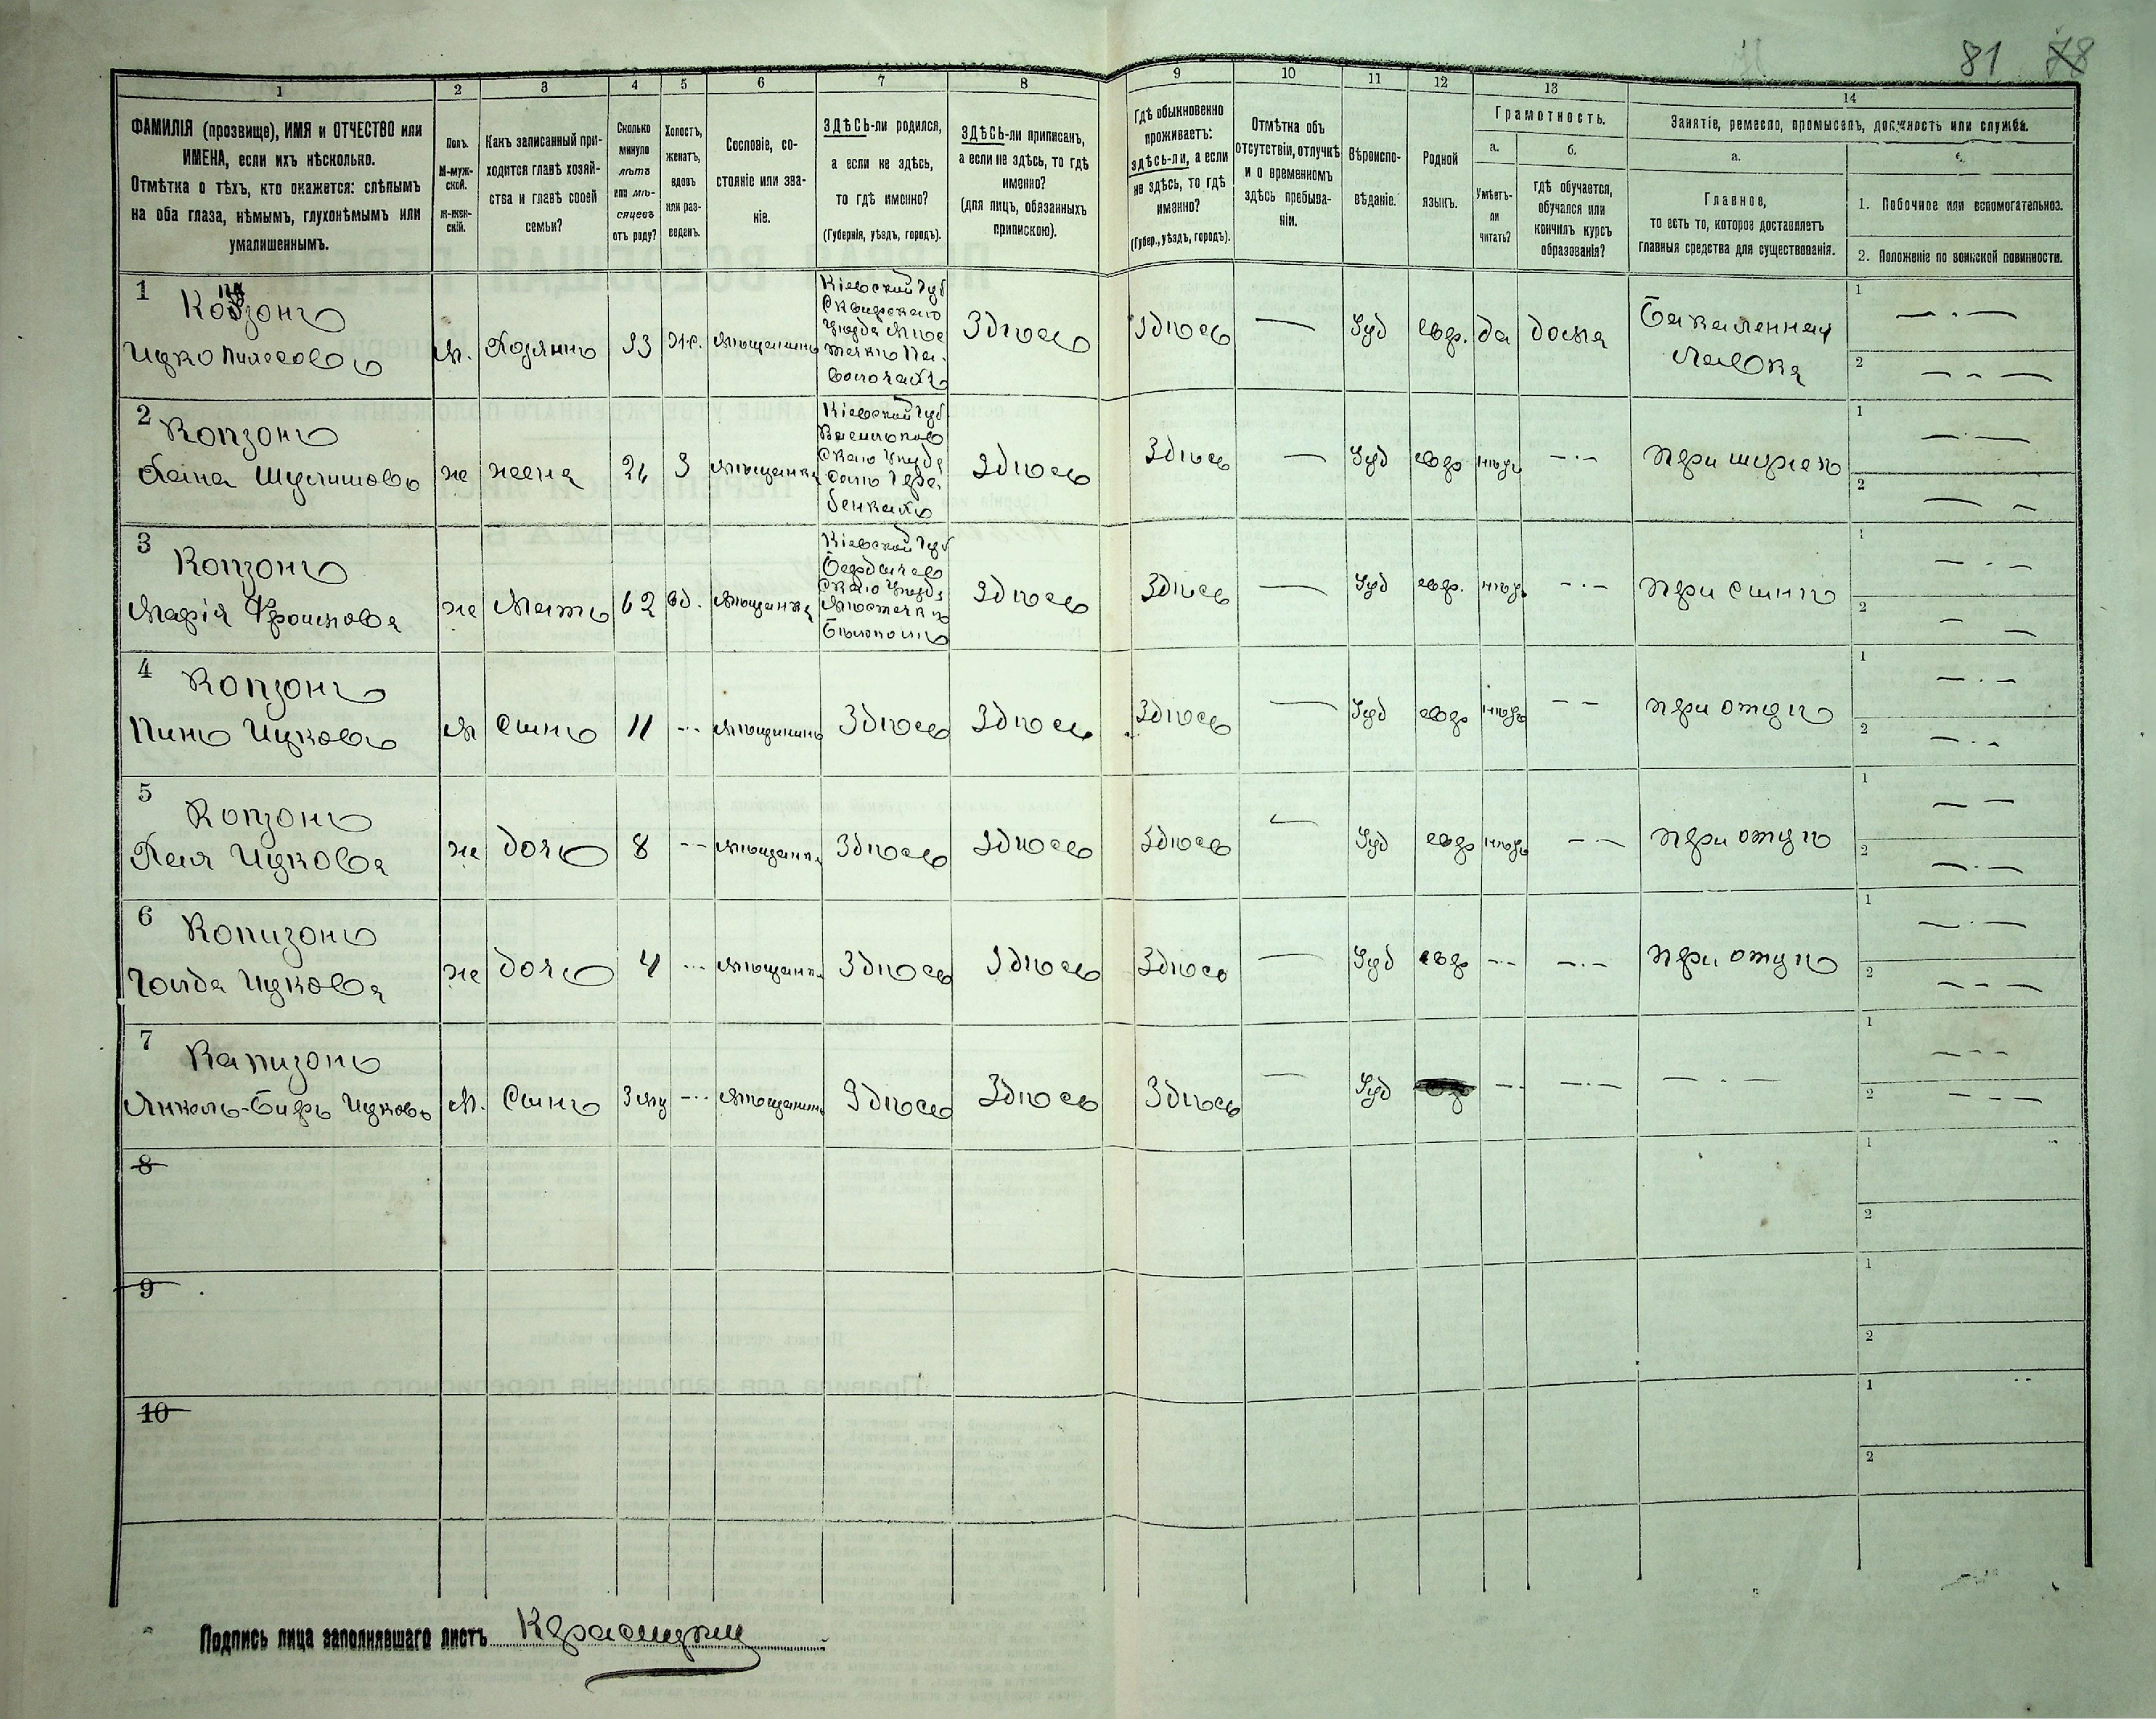 81 78
1 2 3 4 5 6 7 8 9 10 11 12 13 14
ФАМИЛІЯ (прозвище), ИМЯ и ОТЧЕСТВО или
ИМЕНА, если ихъ нѣсколько.
Отмѣтка о тѣхъ, кто окажется: слѣпымъ
на оба глаза, нѣмымъ, глухонѣмымъ или
умалишеннымъ.
Полъ.
М-муж-
ской.
ж-жен-
скій.
Какъ записанный при-
ходится главѣ хозяй-
ства и главѣ своей
семьи?
Сколько
минуло
лѣтъ
или мѣ-
сяцевъ
отъ роду?
Холостъ,
женатъ,
вдовъ
или раз-
веденъ.
Сословіе, со-
стояніе или зва-
ніе.
ЗДѢСЬ-ли родился,
а если не здѣсь,
то гдѣ именно?
(Губернія, уѣздъ, городъ).
ЗДѢСЬ-ли приписанъ,
а если не здѣсь, то гдѣ
именно?
(для лицъ, обязанныхъ
припискою).
Гдѣ обыкновенно
проживаетъ:
здѣсь-ли, а если
не здѣсь, то гдѣ
именно?
(Губер., уѣздъ, городъ).
Отмѣтка объ
отсутствіи, отлучкѣ
и о временномъ
здѣсь пребыва-
ніи.
Вѣроиспо-
вѣданіе.
Родной
языкъ.
Грамотность.
а.
Умѣетъ-
ли
читать?
б.
гдѣ обучается,
обучался или
кончилъ курсъ
образованія?
Занятіе, ремесло, промыселъ, должность или служба.
а.
Главное,
то есть то, которое доставляетъ
главныя средства для существованія.
б.
1. Побочное или вспомогательное.
2. Положеніе по воинской повинности.
1
Копзонъ
Ицко Пинесовъ
М. Хозяинъ 33 Ж. Мѣщанинъ
Кіевской Губ
Сквирскаго
Уѣзда Мѣс
течко Па-
волочахъ
Здѣсь Здѣсь — Іуд евр. да дома
Бакаленная
Лавка
1 — . —
2 — - —
2
Копзонъ
Хана Шулимовъ
же жена 26 З Мѣщанка
Кіевской Губ
Васильков
скаго Уѣзда
село Гре-
бенкахъ
Здѣсь Здѣсь — Іуд евр нѣтъ — . — при мужѣ
1 — . —
2 — -
3
Копзонъ
Марія Фроимова
же Мать 62 вд. Мѣщанка
Кіевской Губ
Бердичев
скаго Уѣзда
Мѣстечкѣ
Бѣлополь
Здѣсь Здѣсь — Іуд евр. нѣтъ — . — при сынѣ
1 — . —
2 — —
4
Копзонъ
Пинь Ицковъ
М Сынъ 11 - - Мѣщанинъ Здѣсь Здѣсь Здѣсь — Іуд евр нѣтъ — — при отцѣ
1 — . —
2 — . -
5
Копзонъ
Хая Ицкова
же дочь 8 - - Мѣщанка Здѣсь Здѣсь Здѣсь — Іуд евр нѣтъ — — при отцѣ
1 — —
2 — . —
6
Копизонъ
Голда Ицкова
же дочь 4 - - Мѣщанка Здѣсь Здѣсь Здѣсь — Іуд евр — - — . — при отцѣ
1 — . —
2 — - —
7
Капизонъ
Янкель-Беръ Ицковъ
М. Сынъ 3 мц - - Мѣщанинъ Здѣсь Здѣсь Здѣсь — Іуд — - — . — — . —
1 — - -
2 — - —
8
1
2
9
1
2
10
1
2
Подпись лица заполнявшаго листъ Красицкій